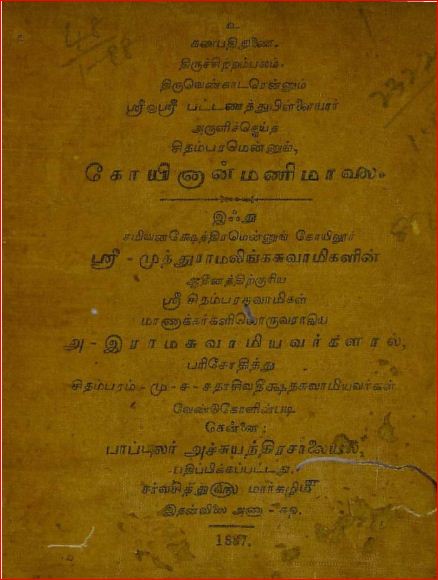 உ
கணபதிதுணை.
திருச்சிற்றம்பலம்.
திருவெண்காடரென்னும்
ஸ்ரீலஸ்ரீ பட்டணத்துபிள்ளையார்
அருளிச்செய்த
சிதம்பரமென்னும்,
கோயினான்மணிமாலை.
இஃது
சமிவனக்ஷேத்திரமென்னுங் கோயிலூர்
ஸ்ரீ - முத்துராமலிங்கசுவாமிகளின்
ஆதீனத்திற்குரிய
ஸ்ரீ சிதம்பரசுவாமிகள்
மாணாக்கர்களிலொருவராகிய
அ - இராமசுவாமியவர்களால்,
பரிசோதித்து
சிதம்பரம் - மு - ச - சதாசிவதீக்ஷதசுவாமியவர்கள்
வேண்டுகோளின்படி
சென்னை:
பாப்புலர் அச்சுயந்திரசாலையில்,
பதிப்பிக்கப்பட்டது.
சர்வசித்துவரு மார்கழிமீ
இதன்விலை அணா -
1887.